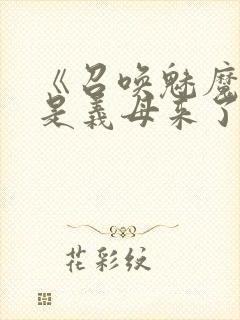 《召唤魅魔
是义母来了
花彩纹